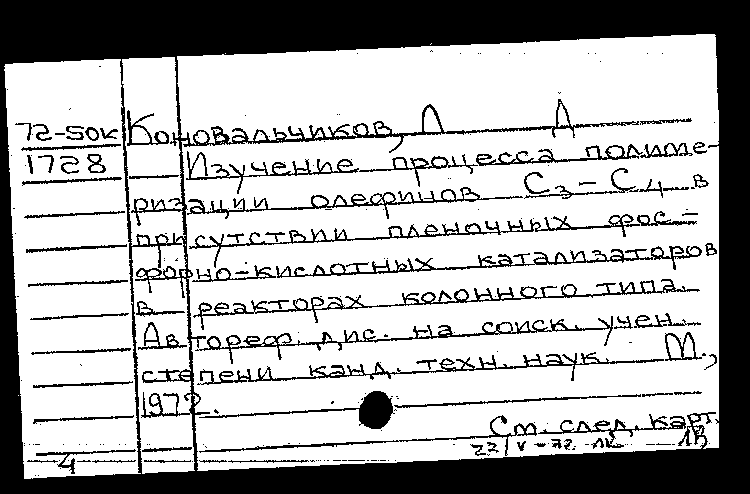 72-5ок Коновальчиков, Л Д
1728 Изучение процесса полиме-
ризации олефинов С3-С4 в
присутствии пленочных фос-
форно-кислотных катализаторов
в реакторах колонного типа.
Автореф. дис. на соиск. учен.
степени канд. техн. наук. М.,
1972.
См. след. карт.
22/V-72 ЛВ
4